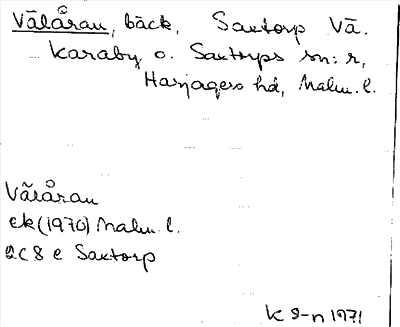 Välåran, bäck, Saxtorp Vä.
Karaby o. Saxtorps sn:r,
Harjagers hd, Malm. l.
Välåran
ek (1970) Malm. l.
2C 8 e Saxtorp
K S-n 1971